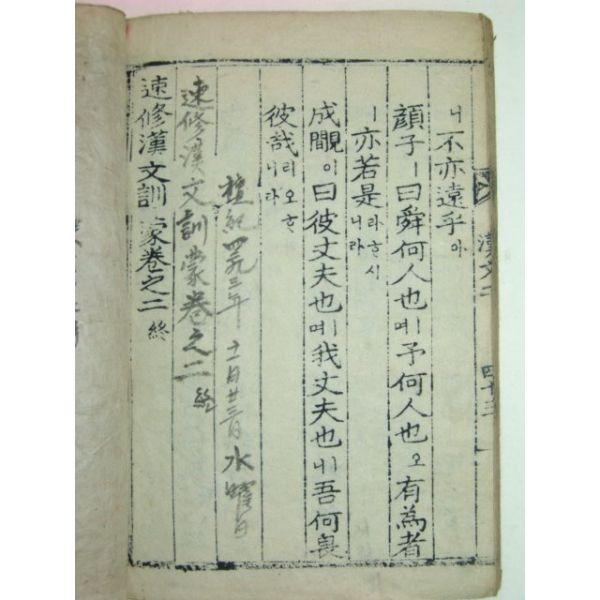 漢文二 四十三
니不亦遠乎아
顔子ㅣ曰舜何人也예予何人也오有爲者
ㅣ亦若是라하시니라
成覵이曰彼丈夫也예我丈夫也니吾何畏
彼哉리오하니라
檀紀四二九三年 十一月廿三日 水曜日
速修漢文訓蒙卷之二 終
速修漢文訓蒙卷之二 終